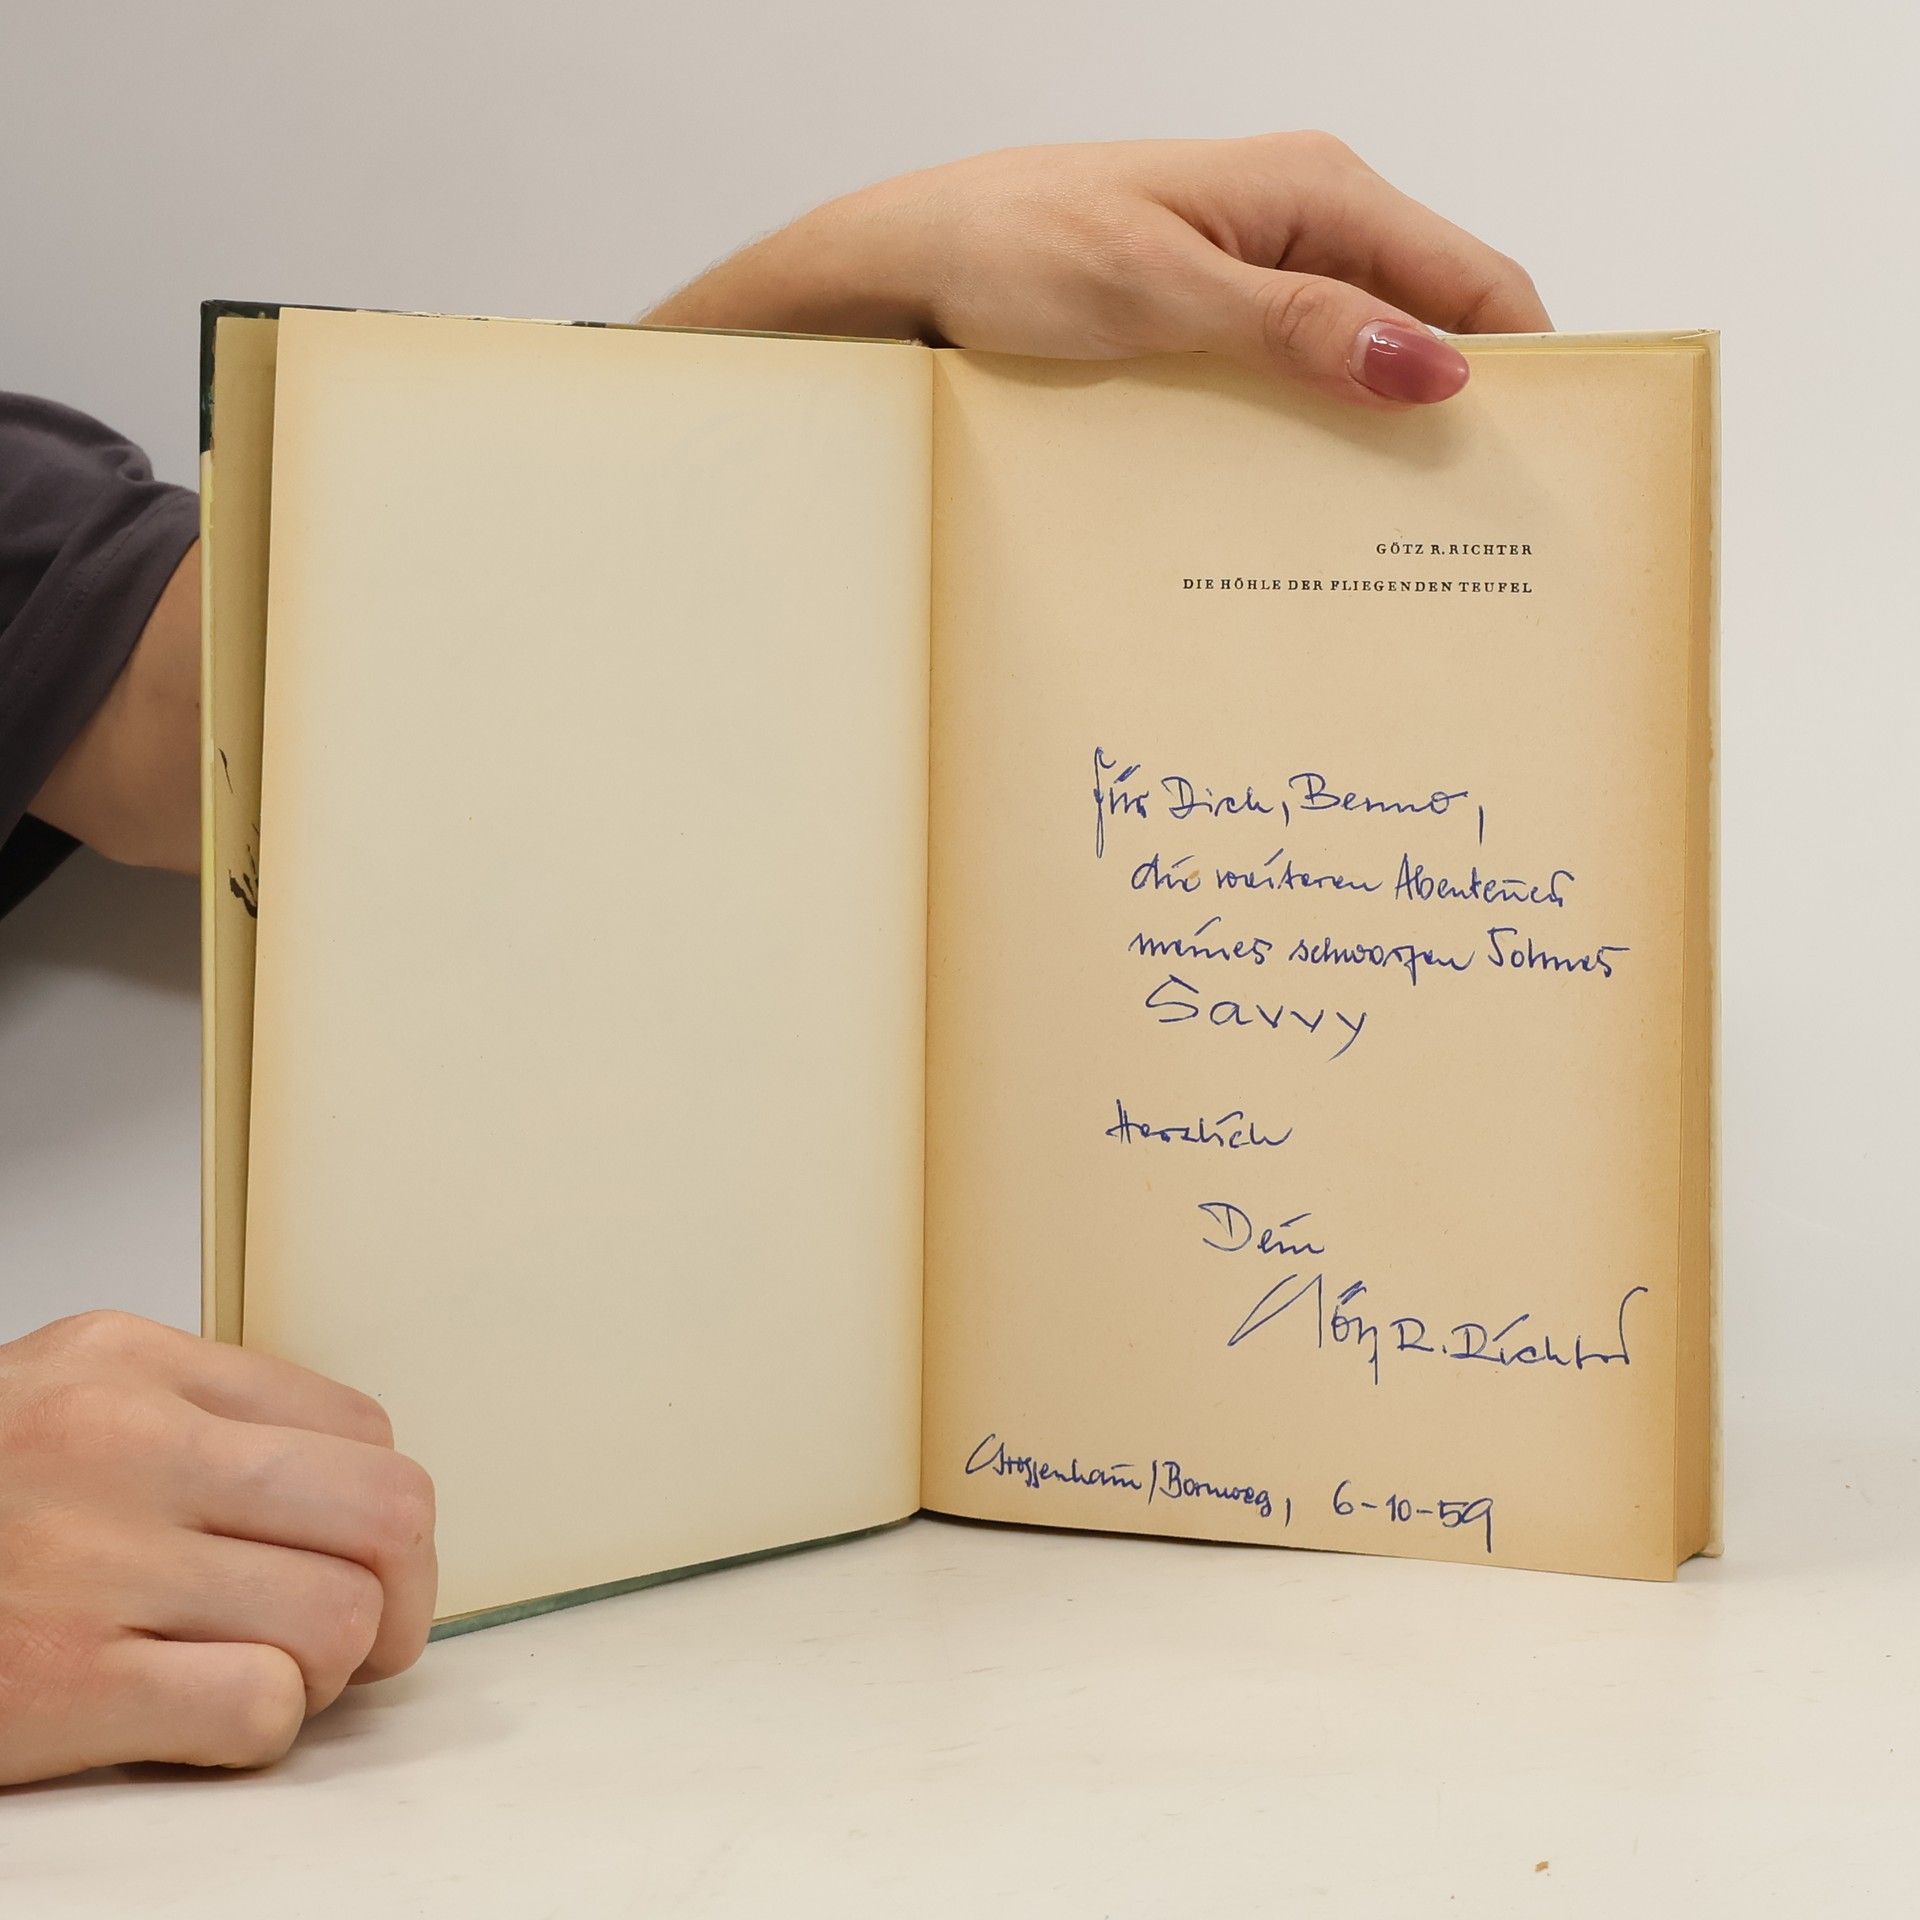 GÖTZ R. RICHTER
DIE HÖHLE DER FLIEGENDEN TEUFEL
Für Dich, Benno,
die weiteren Abenteuer
meines schwarzen Sohnes
Savvy
Herzlich
Dein
Götz R. Richter
6-10-59